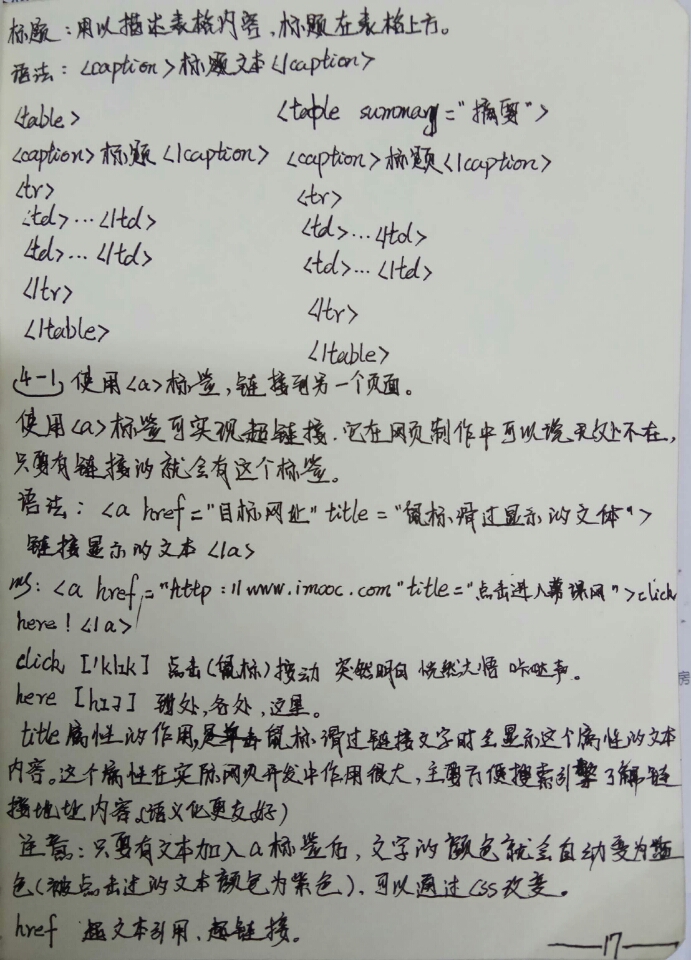 标题：用以描述表格内容，标题在表格上方。
语法：<caption>标题文本</caption>
<table>
<caption>标题</caption>
<tr>
<td>…</td>
<td>…</td>
</tr>
</table>
<table summary="摘要">
<caption>标题</caption>
<tr>
<td>…</td>
<td>…</td>
</tr>
</table>
4-1 使用<a>标签，链接到另一个页面。
使用<a>标签可实现超链接，它在网页制作中可以说无处不在，
只要有链接的就会有这个标签。
语法：<a href="目标网址" title="鼠标滑过显示的文体">
链接显示的文本</a>
<a href="http://www.imooc.com" title="点击进入慕课网">click
here!</a>
click ['klɪk] 点击(鼠标)按动 突然明白 恍然大悟 咔哒声。
here [hɪə] 到处,各处,这里。
title属性的作用,鼠标滑过链接文字时会显示这个属性的文本
内容。这个属性在实际网页开发中作用很大，主要方便搜索引擎了解链
接地址内容。(语义化更友好)
注意：只要有文本加入a标签后，文字的颜色就会自动变为蓝
色(被点击过的文本颜色为紫色)，可以通过css改变。
href 超文本引用、超链接。
17
房